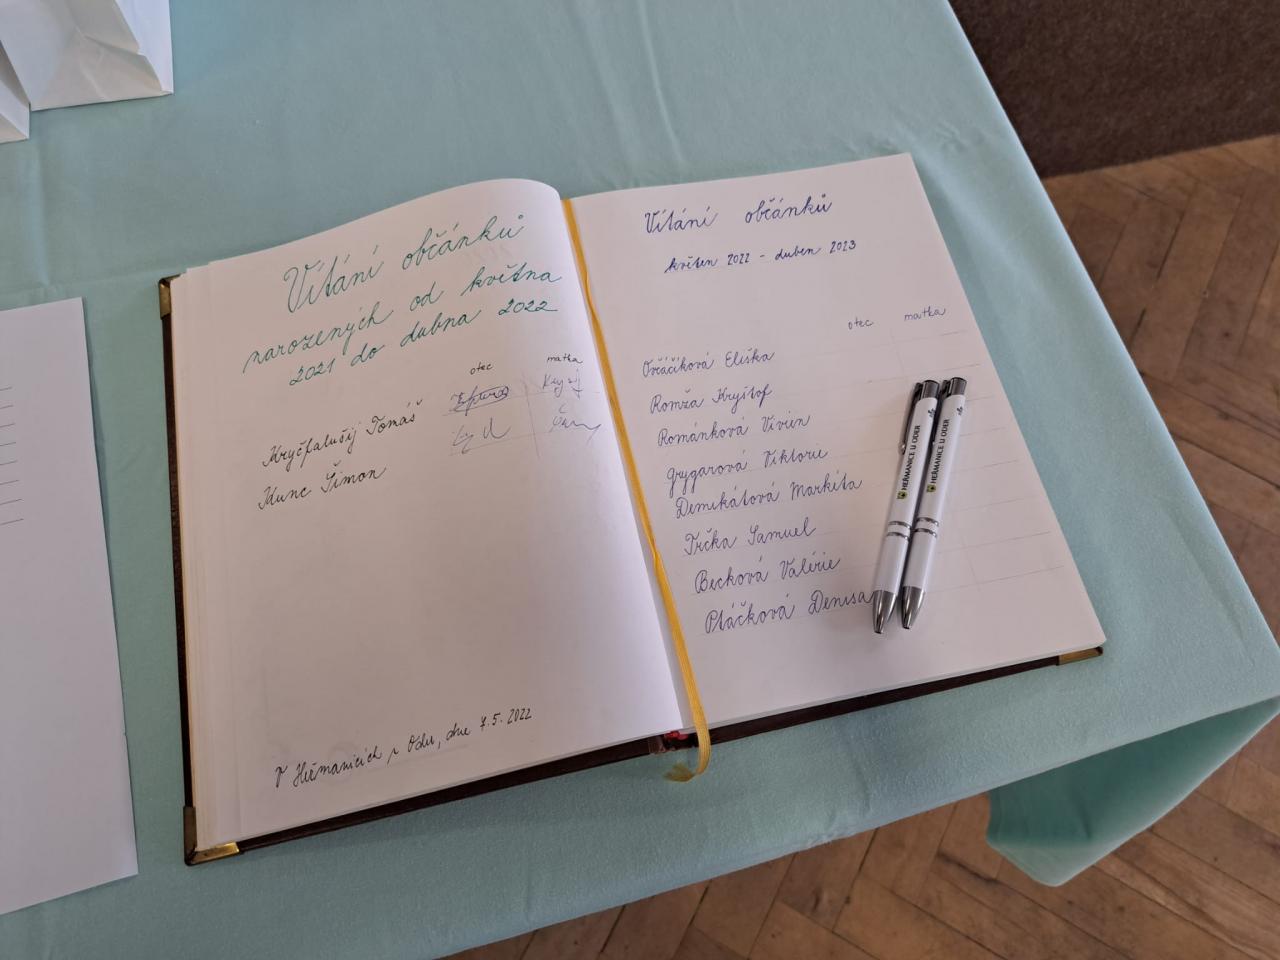 Vítání občánků
narozených od května
2021 do dubna 2022
otec matka
Kryčfalušij Tomáš
Kunc Šimon
V Heřmanicích u Oder, dne 7.5. 2022
Vítání občánků
květen 2022 - duben 2023
otec matka
Ovčáčíková Eliška
Romža Kryštof
Románková Vivien
Grygarová Viktorie
Demikátová Markéta
Trčka Samuel
Becková Valérie
Ptáčková Denisa
HEŘMANICE U ODER
HEŘMANICE U ODER